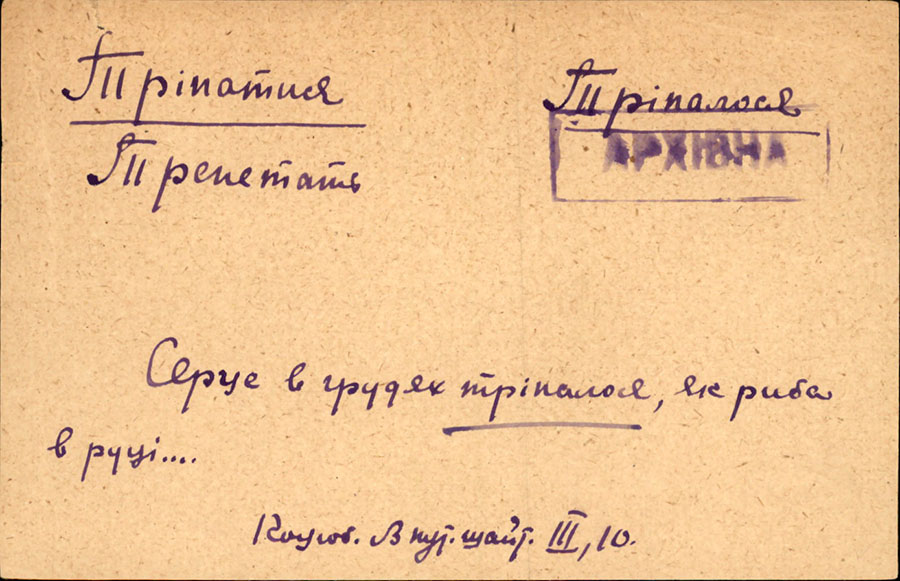 Тріпатися
Тріпалося
АРХІВНА
Трепетать
Серце в грудях тріпалося, як риба
в руці....
Коцюб. В пут. шайт. III, 10.